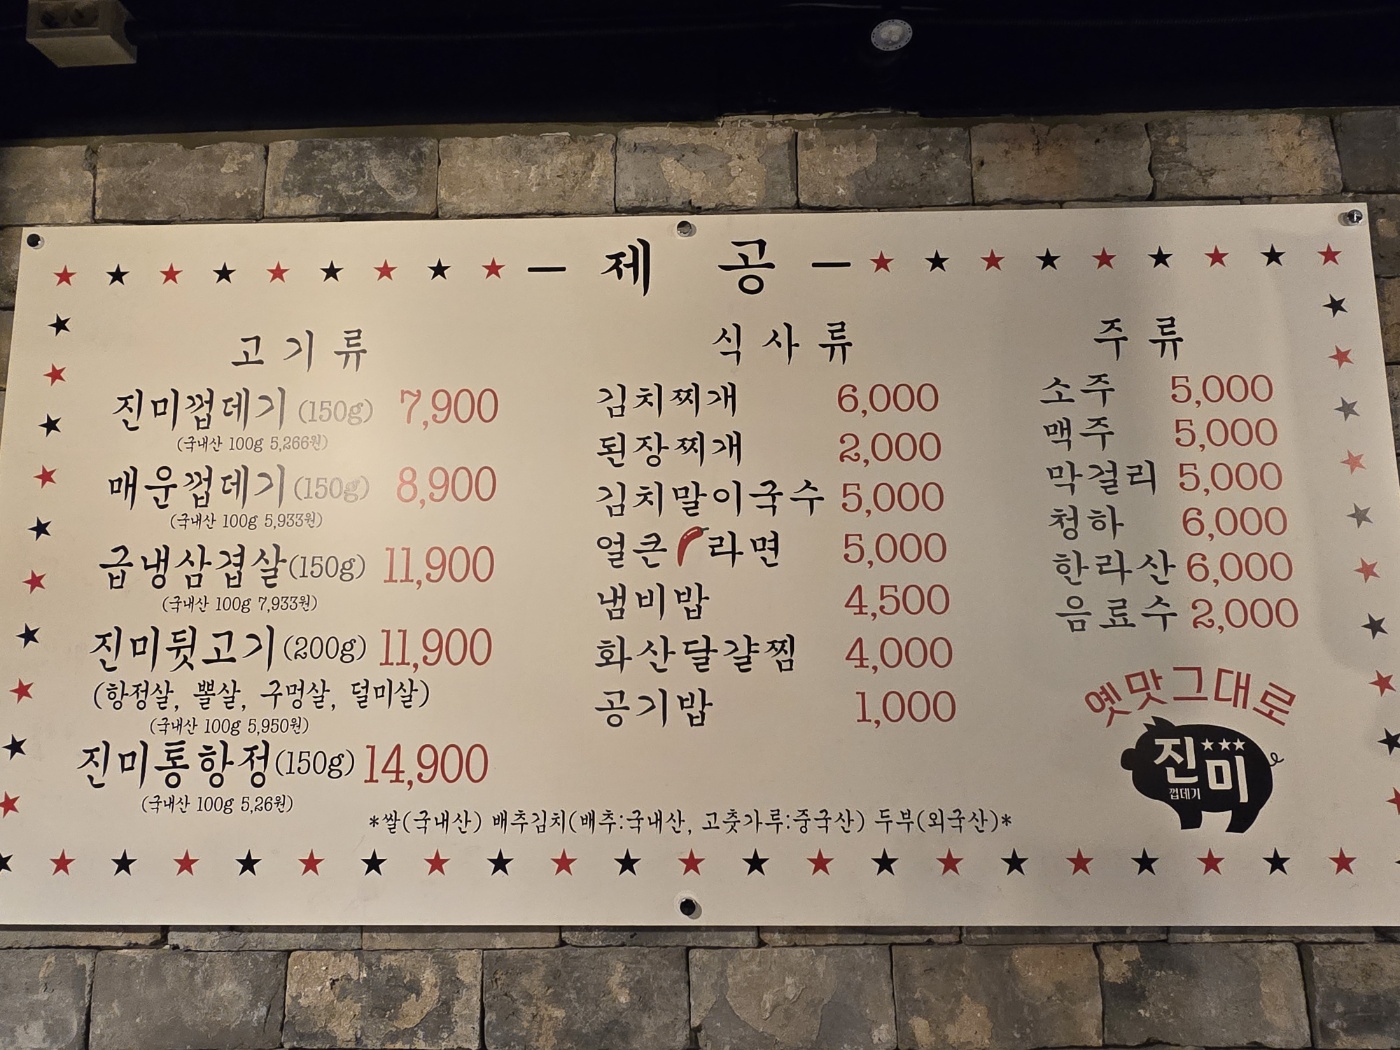 제 공
고기류
진미껍데기(150g) 7,900
(국내산 100g 5,266원)
매운껍데기(150g) 8,900
(국내산 100g 5,933원)
급냉삼겹살(150g) 11,900
(국내산 100g 7,933원)
진미뒷고기(200g) 11,900
(항정살, 뽈살, 구멍살, 덜미살)
(국내산 100g 5,950원)
진미통항정(150g) 14,900
(국내산 100g 5,26원)
식사류
김치찌개 6,000
된장찌개 2,000
김치말이국수 5,000
얼큰라면 5,000
냄비밥 4,500
화산달걀찜 4,000
공기밥 1,000
주류
소주 5,000
맥주 5,000
막걸리 5,000
청하 6,000
한라산 6,000
음료수 2,000
옛맛그대로
진미
껍데기
*쌀(국내산) 배추김치(배추:국내산, 고춧가루:중국산) 두부(외국산)*